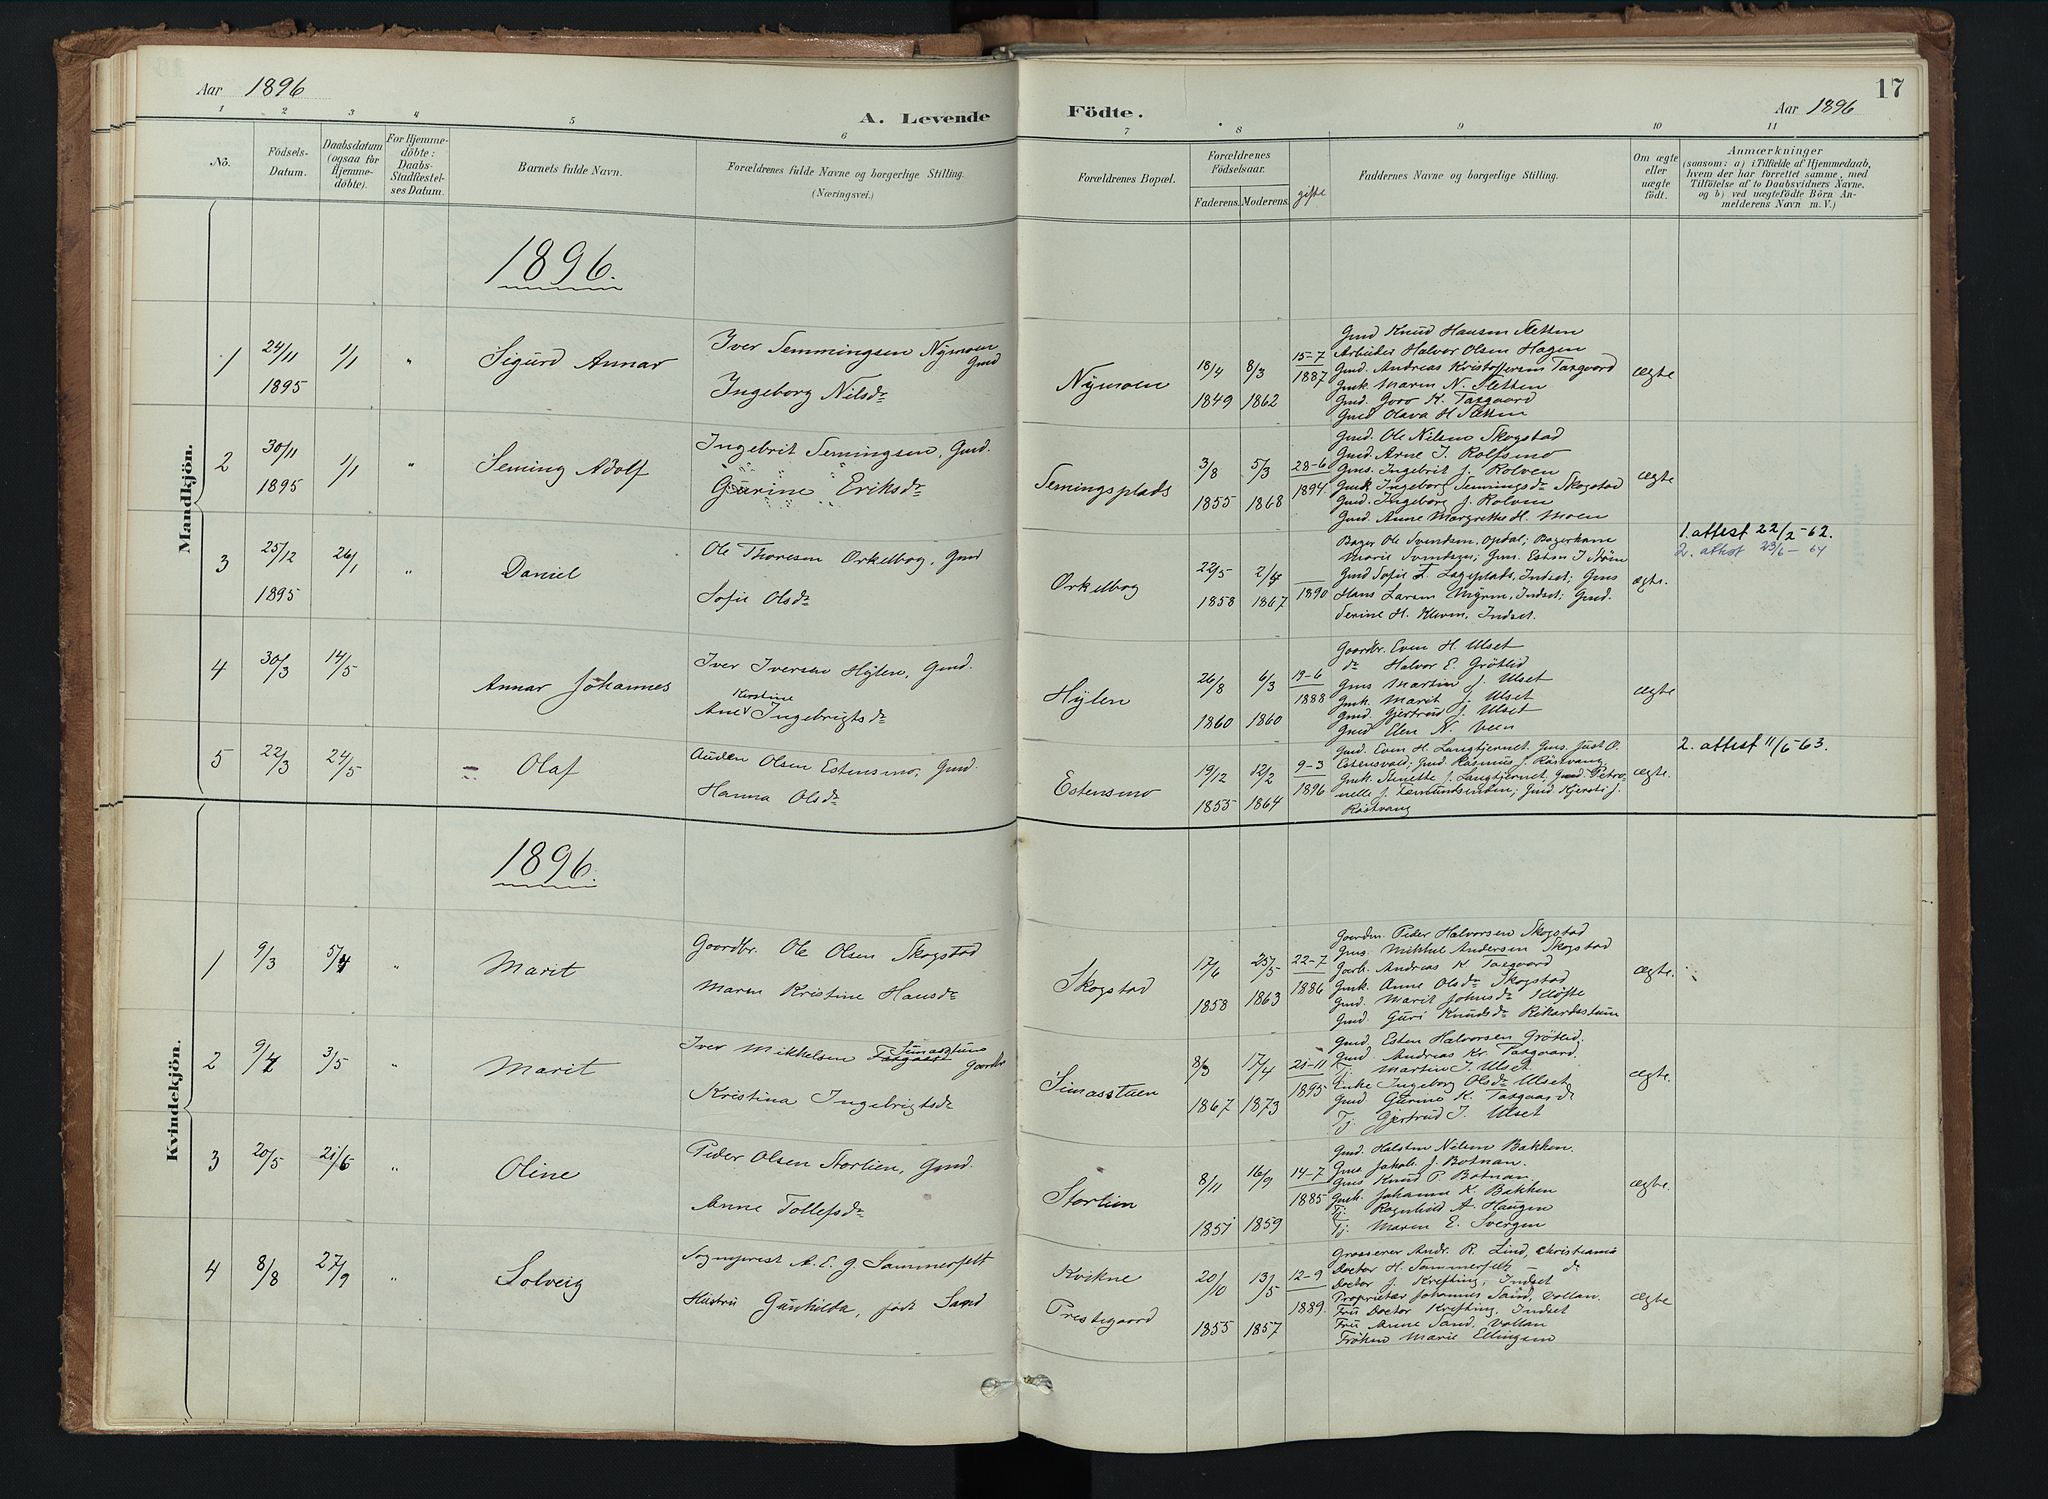 Aar 1896
A. Levende Födte.
17
Aar 1896
1 2 3 4 5 6 7 8 9 10 11
No.
Födsels-
Datum.
Daabsdatum
(ogsaa for
Hjemme-
döbte).
For Hjemme-
döbte:
Daabs-
Stadfæstel-
ses Datum.
Barnets fulde Navn.
Forældrenes fulde Navne og borgerlige Stilling.
(Næringsvei.)
Forældrenes Bopæl.
Forældrenes
Födselsaar.
Faderens. Moderens.
gifte
Faddernes Navne og borgerlige Stilling.
Om ægte
eller
uægte
födt.
Anmærkninger
(saasom: a) i Tilfælde af Hjemmedaab,
hvem der har forrettet samme, med
Tilföielse af to Daabsvidners Navne,
og b) ved uægtefödte Börn An-
melderens Navn m. V.)
Mandkjön.
1896.
1 24/11 1895 1/1 " Sigurd Annar
Iver Semmingsen Nymoen Gmd
Ingeborg Nilsdr
Nymoen 18/4 1849 8/3 1862 15-7 1887
Gmd Knud Hansen Sletten
Arbeider Halvor Olsen Hagen
Gmd. Andreas Kristoffersen Tasgaard
Gmk Maren N. Sletten
Gmd. Goro K. Tasgaard
Gmd Olava H Sletten
ægte
2 30/11 1895 1/1 " Seming Adolf
Ingebrit Semingsen, Gmd.
Gurine Eriksdr
Semingsplads 3/8 1855 5/3 1868 28-6 1894.
Gmd. Ole Nilsen Skogstad
Gmd. Arne J. Rolfsmo
Gms. Ingebrit J. Rolven
Gmk Ingeborg Semmingsdr Skogstad
Gmd. Ingeborg J. Rolven
Gmd. Anne Margrethe H. Moen
ægte
3 25/12 1895 26/1 " Daniel
Ole Thoresen Orkelbog, Gmd
Sofie Olsdr
Orkelbog 22/5 1858 2/6 1867 1890
Bager Ole Svendsen, Opdal; Bagerkone
Marie Svendsen; Gms. Esten J Strøm
Gmd Sofie T. Lageplads, Indset; Gms
Hans Larsen Myren, Indset; Gmd.
Serine H. Kleven, Indset.
ægte.
1. attest 22/2-62.
2. attest 23/6-64
4 30/3 14/5 Annar Johannes
Iver Iversen Hylen, Gmd.
Kirstine
Ane Ingebrigtsdr
Hylen 26/8 1860 6/3 1860 19-6 1888
Gaardbr. Even H. Ulset
dr Halvor E. Grötlid
Gms Martin J. Ulset
Gmk. Marit J. Ulset
Gmd. Gjertrud J. Ulset
Gmd Elen N. Veen
ægte
5 22/3 24/5 Olaf
Auden Olsen Estensmo, Gmd.
Hanna Olsdr
Estensmo 19/12 1855 12/2 1864 9-3 1896
Gmd. Even H. Langtjernet. Gms. Just O.
Estensvold; Gmd Rasmus J. Röstvang
Gmk. Stenette J. Langtjernet, Gmd. Petro-
nelle J. Femundsenden; Gmd Kjersti J.
Röstvang
ægte.
2. attest 11/5 63.
Kvindekjön.
1896.
1 9/3 5/4 " Marit
Gaardbr. Ole Olsen Skogstad
Maren Kristine Hansdr
Skogstad 17/6 1858 25/5 1863 22-7 1886
Gaardm. Peder Halvorsen Skogstad
Gms. Mikkel Andersen Skogstad
Garb. Andreas K. Tasgaard
Gmk. Anne Olsdr Skogstad
Gmd. Marit Johnsdr Klöfte
Gmd. Guri Knudsdr Rikardsstuen
ægte.
2 9/4 3/5 " Marit
Iver Mikkelsen Simasstuen Gaardbr
Kristina Ingebrigtsdr
Simasstuen 8/3 1867 17/4 1873 21-11 1895
Gmd. Esten Halvorsen Grötlid
Gmd. Andreas Kr. Tasgaard.
Tj. Martin J. Ulset.
Enke Ingeborg Olsdr Ulset
Gmd Gurine K. Tasgaard
Tj. Gjertrud J. Ulset
ægte.
3 20/5 21/6 " Oline
Peder Olsen Storlien, Gmd.
Anne Tollefsdr
Storlien 8/11 1851 16/9 1859 14-7 1885
Gmd. Halsten Nilsen Bakken.
Gms Jakob J. Botnan.
Gms Knud P. Botnan.
Gmk. Johanne K. Bakken
Tj. Ragnhild A. Haugen
Tj. Maren E. Svergen
ægte.
4 8/8 27/9 " Solveig
Sogneprest A. E. G Sommerfelt
Hustru Gunhilda, født Sand
Kvikne
Prestegaard 20/10 1855 13/5 1857 12-9 1889.
Grosserer Andr. R. Lind, Christiania
Doctor H. Sommerfelt - dr
Doctor J. Krefting, Indset
Proprietær Johannes Sand, Vollan.
Fru Doctor Krefting, Indset
Fru Anne Sand, Vollan
Fröken Marie Ellingsen
ægte